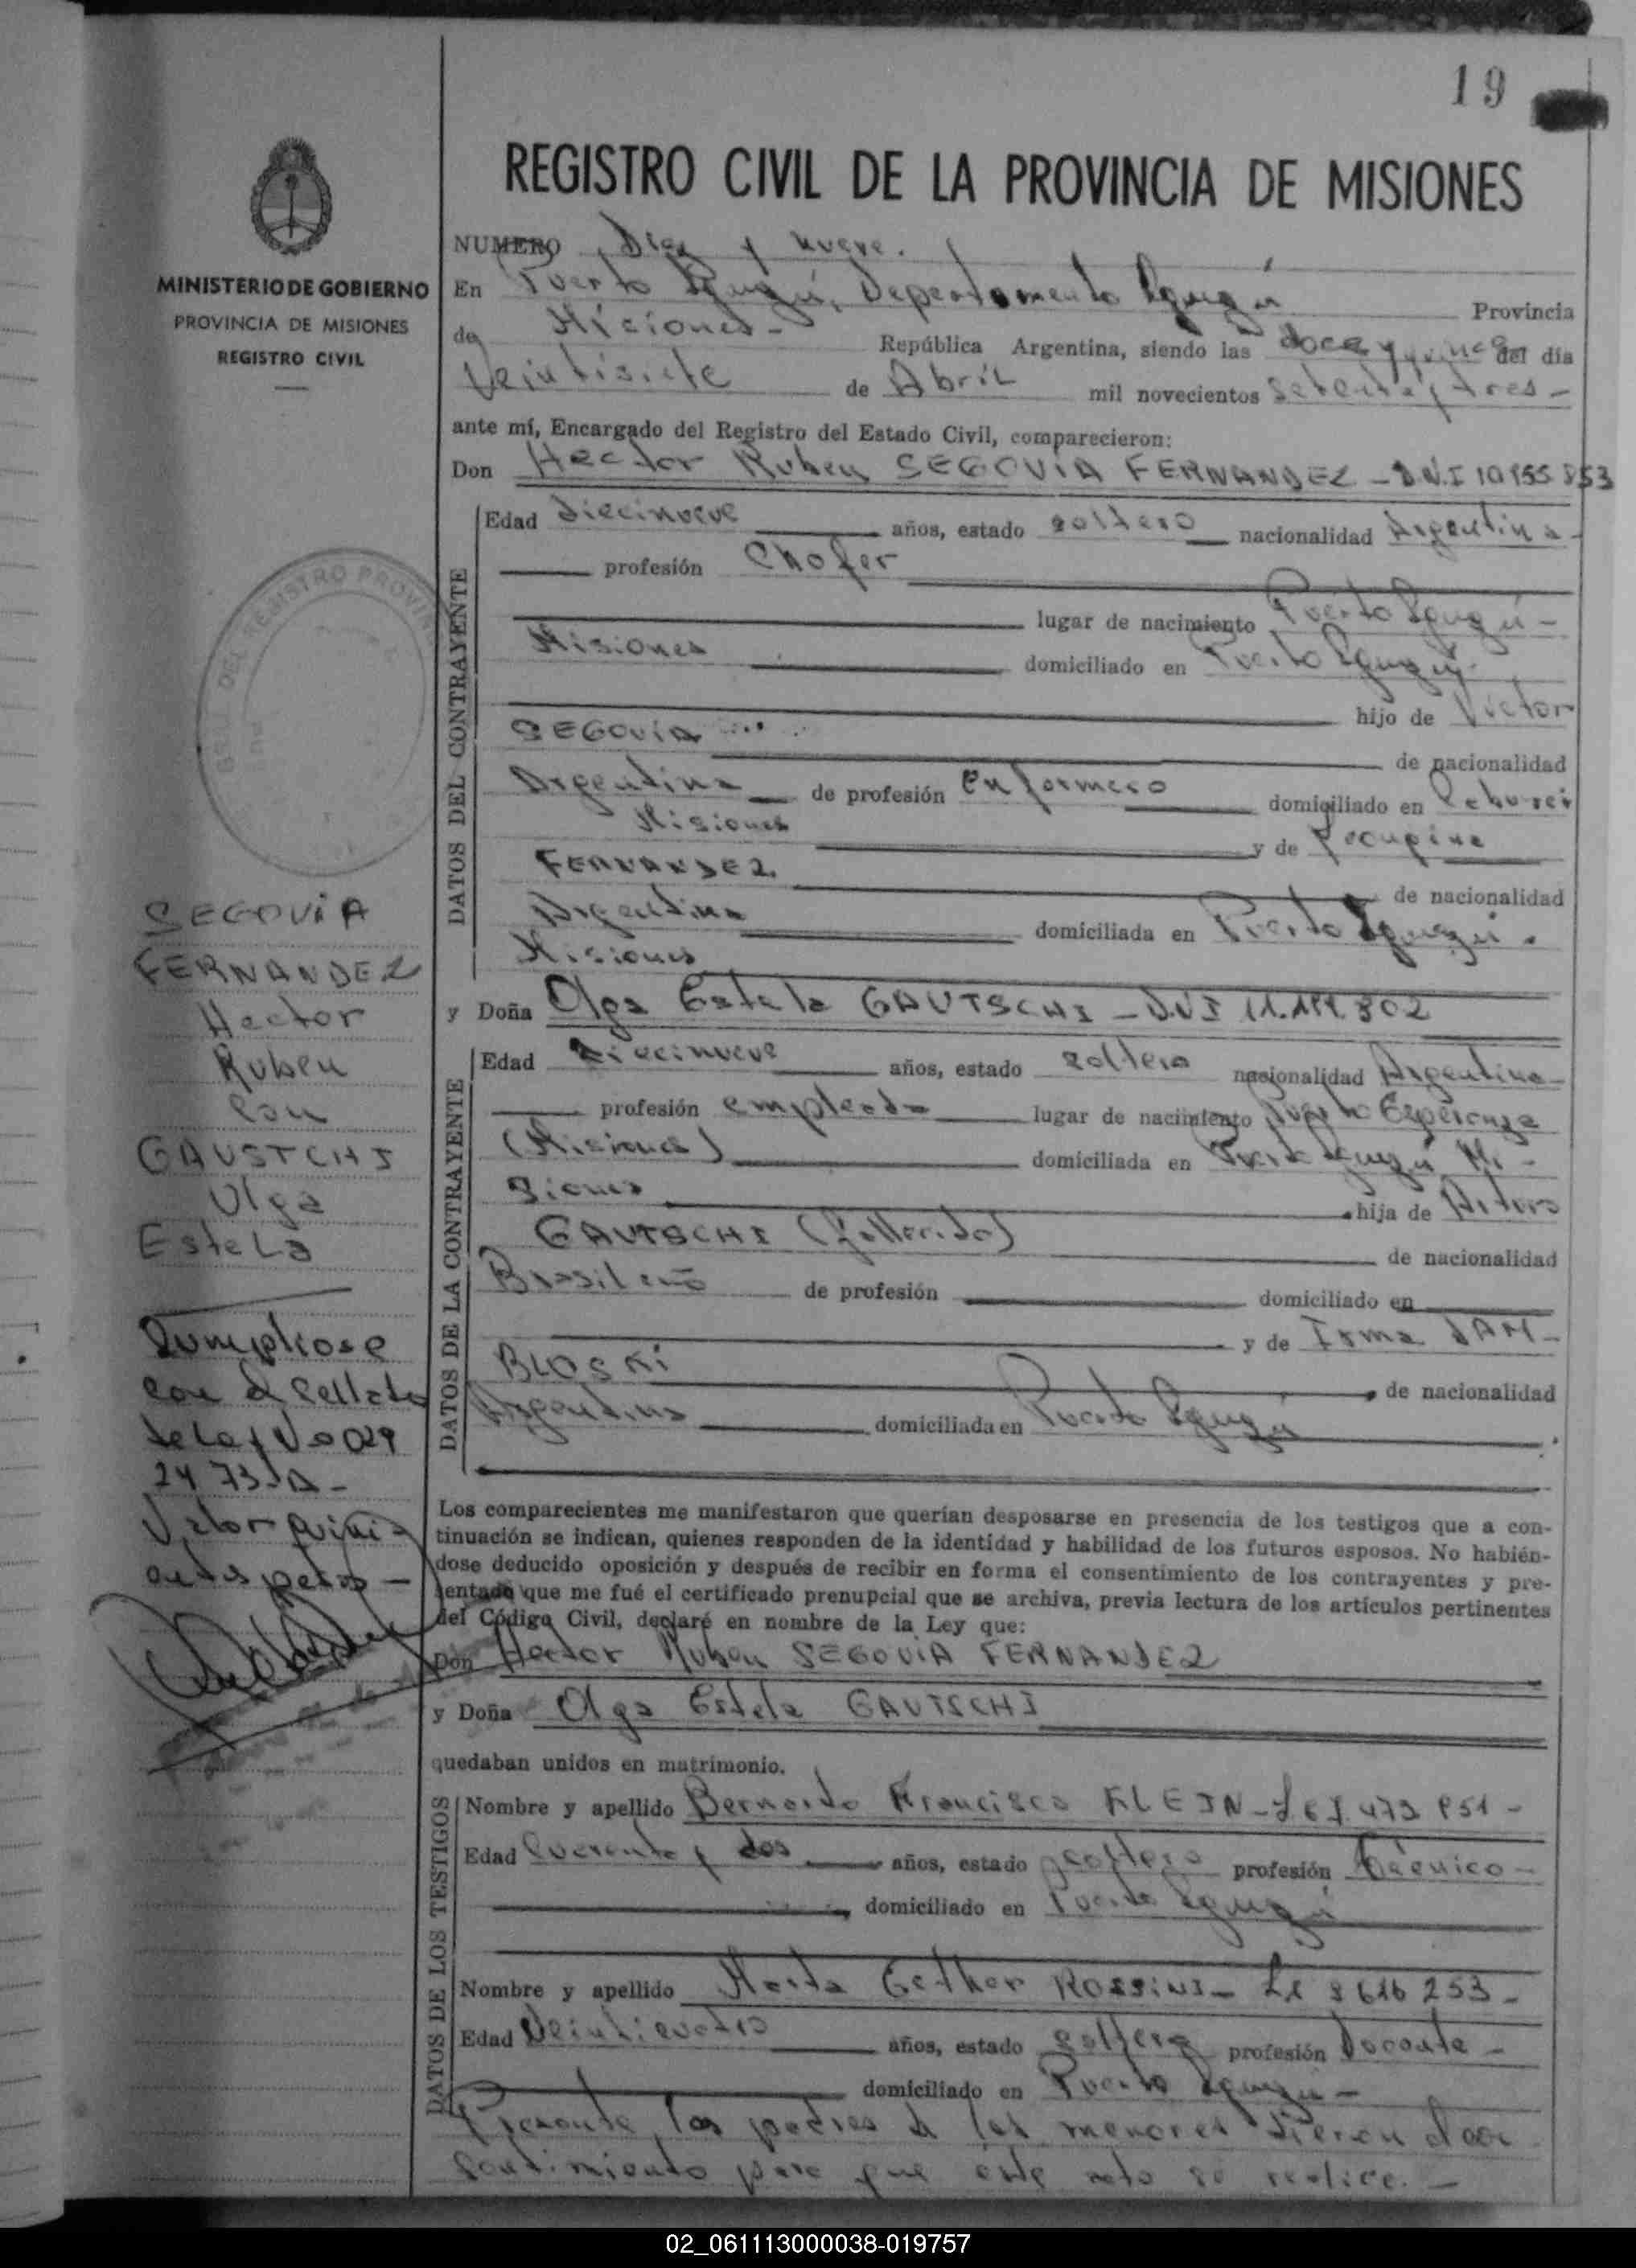 19
REGISTRO CIVIL DE LA PROVINCIA DE MISIONES
MINISTERIO DE GOBIERNO
PROVINCIA DE MISIONES
REGISTRO CIVIL
NUMERO Diez y nueve.
En Puerto Iguazú, Departamento Iguazú Provincia
de Misiones - República Argentina, siendo las doce y quince del día
Veintisiete de Abril mil novecientos setenta y tres -
ante mí, Encargado del Registro del Estado Civil, comparecieron:
Don Hector Ruben SEGOVIA FERNANDEZ - D.N.I 10 955 853
DATOS DEL CONTRAYENTE
Edad Diecinueve años, estado soltero nacionalidad Argentina -
profesión Chofer
lugar de nacimiento Puerto Iguazú -
Misiones domiciliado en Puerto Iguazú -
hijo de Victor
SEGOVIA de nacionalidad
Argentina de profesión enfermero domiciliado en
Misiones y de
FERNANDEZ. de nacionalidad
Argentina domiciliada en Puerto Iguazú.
Misiones
y Doña Olga Estela GAUTSCHI - D.N.I 11. 802
DATOS DE LA CONTRAYENTE
Edad Diecinueve años, estado soltera nacionalidad Argentina -
profesión empleada lugar de nacimiento Puerto Esperanza
(Misiones) domiciliada en Puerto Iguazú Mi -
siones hija de Arturo
GAUTSCHI (fallecido) de nacionalidad
Brasileño de profesión domiciliado en
y de Irma JAM -
BLOSKI de nacionalidad
Argentina domiciliada en Puerto Iguazú
Los comparecientes me manifestaron que querían desposarse en presencia de los testigos que a con-
tinuación se indican, quienes responden de la identidad y habilidad de los futuros esposos. No habién-
dose deducido oposición y después de recibir en forma el consentimiento de los contrayentes y pre-
sentado que me fué el certificado prenupcial que se archiva, previa lectura de los artículos pertinentes
del Código Civil, declaré en nombre de la Ley que:
Don Hector Ruben SEGOVIA FERNANDEZ
y Doña Olga Estela GAUTSCHI
quedaban unidos en matrimonio.
DATOS DE LOS TESTIGOS
Nombre y apellido Bernardo Francisco KLEIN -
Edad Cuarenta y dos años, estado soltero profesión Técnico -
domiciliado en Puerto Iguazú
Nombre y apellido Marta Esther ROSSINI - 253 -
Edad Veinticuatro años, estado soltera profesión Docente -
domiciliado en Puerto Iguazú -
Presente los padres de los menores dieron el con
sentimiento para que este acto se realice. -
SEGOVIA
FERNANDEZ
Hector
Ruben
con
GAUSTCHI
Olga
Estela
Cumpliose
con el Sellado
de Ley No 029
24 73
Valor quini-
entos pesos -
02_061113000038-019757